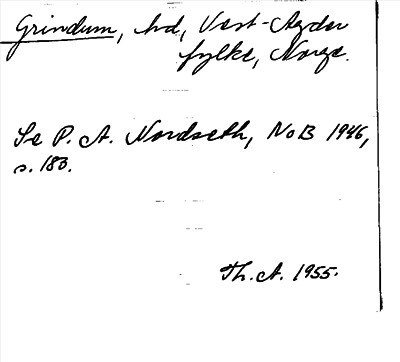 Grindum, hd, Vest-Agder
fylke, Norge.
Se P. A. Nordseth, NoB 1946,
s. 183.
Th. A. 1955.